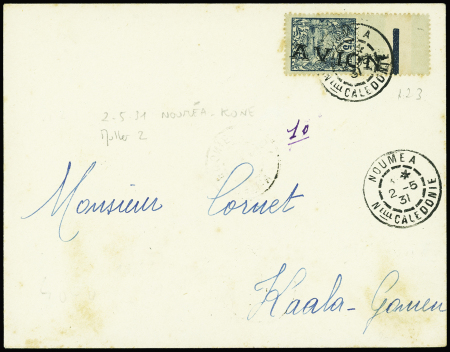 75
AVION
NOUMEA
31
Nlle CALEDONIE
123
2-5-31 NOUMÉA-KONE
Muller 2
10
NOUMEA
2-5
31
Nlle CALEDONIE
Monsieur Cornet
Kaala-Gomen